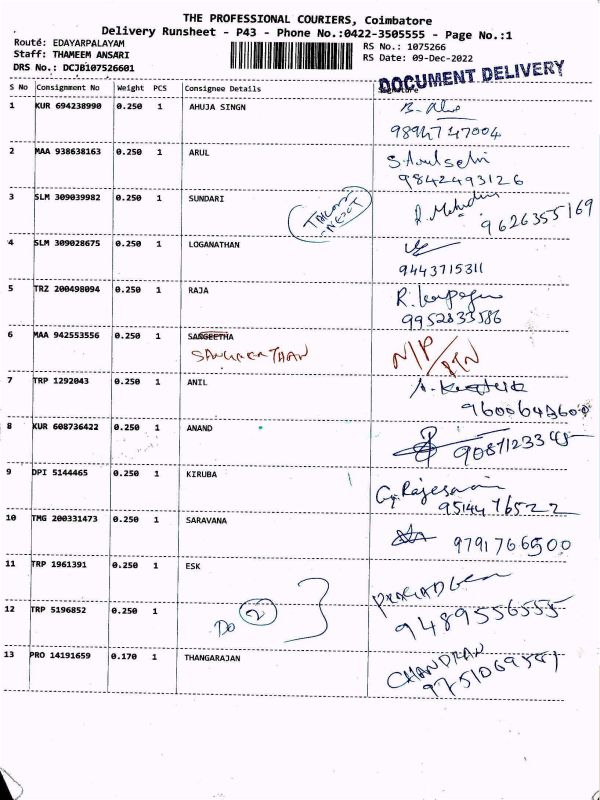 THE PROFESSIONAL COURIERS, Coimbatore
Delivery Runsheet - P43 - Phone No.:0422-3505555 - Page No.:1
Route: EDAYARPALAYAM
RS No.: 1075266
Staff: THAMEEM ANSARI
RS Date: 09-Dec-2022
DRS No.: DCJB107526601
DOCUMENT DELIVERY
S No Consignment No Weight PCS Consignee Details Signature
1 KUR 694238990 0.250 1 AHUJA SINGN
2 MAA 938638163 0.250 1 ARUL
S.Arulselvi
9842493126
3 SLM 309039982 0.250 1 SUNDARI
9626355169
4 SLM 309028675 0.250 1 LOGANATHAN
9443715311
5 TRZ 200498094 0.250 1 RAJA
9952833586
6 MAA 942553556 0.250 1 SANGEETHA
N/P
RTN
7 TRP 1292043 0.250 1 ANIL
8 KUR 608736422 0.250 1 ANAND
9087123345
9 DPI 5144465 0.250 1 KIRUBA
9514476522
10 TMG 200331473 0.250 1 SARAVANA
9791766500
11 TRP 1961391 0.250 1 ESK
12 TRP 5196852 0.250 1
DO 2
9489556555
13 PRO 14191659 0.170 1 THANGARAJAN
CHANDRAN
9751069581